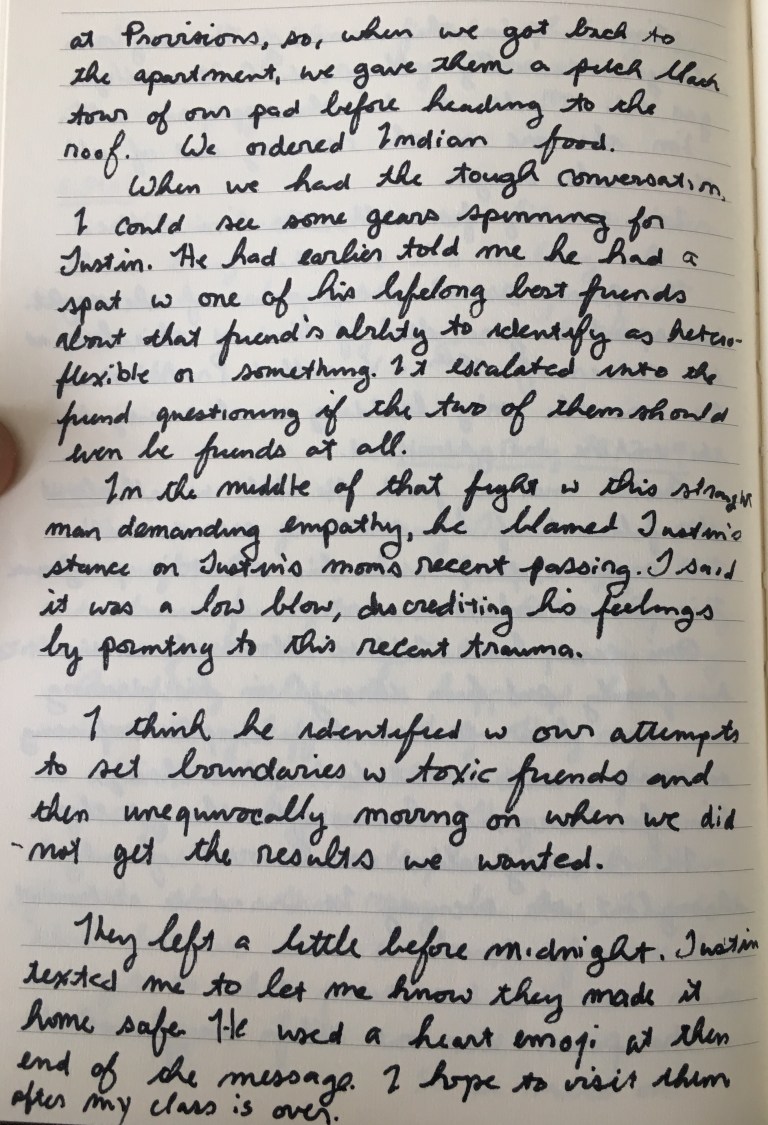 at Provisions, so, when we got back to
the apartment, we gave them a pitch black
tour of our pad before heading to the
roof. We ordered Indian food.
When we had the tough conversation,
I could see some gears spinning for
Justin. He had earlier told me he had a
spat w one of his lifelong best friends
about that friend's ability to identify as hetero-
flexible or something. It escalated into the
friend questioning if the two of them should
even be friends at all.
In the middle of that fight w this straight
man demanding empathy, he blamed Justin's
stance on Justin's mom's recent passing. I said
it was a low blow, discrediting his feelings
by pointing to this recent trauma.
I think he identified w our attempts
to set boundaries w toxic friends and
then unequivocally moving on when we did
not get the results we wanted.
They left a little before midnight. Justin
texted me to let me know they made it
home safe. He used a heart emoji at then
end of the message. I hope to visit them
after my class is over.